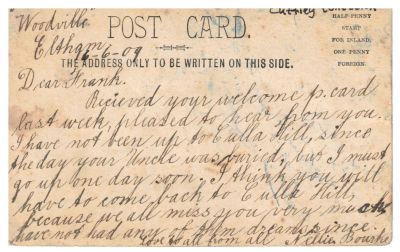 Woodville
POST CARD.
Eltham
6-6-09
HALF-PENNY
STAMP
FOR INLAND,
ONE PENNY
FOREIGN.
THE ADDRESS ONLY TO BE WRITTEN ON THIS SIDE.
Dear Frank.
Recieved your welcome p. card
last week, pleased to hear from you
I have not been up to Culla Hill, since
the day your Uncle was buried, but I must
go up one day soon. I think you will
have to come back to Culla Hill,
because we all miss you very much
have not had any of them dreams since.
love to all from all Nellie Bourke